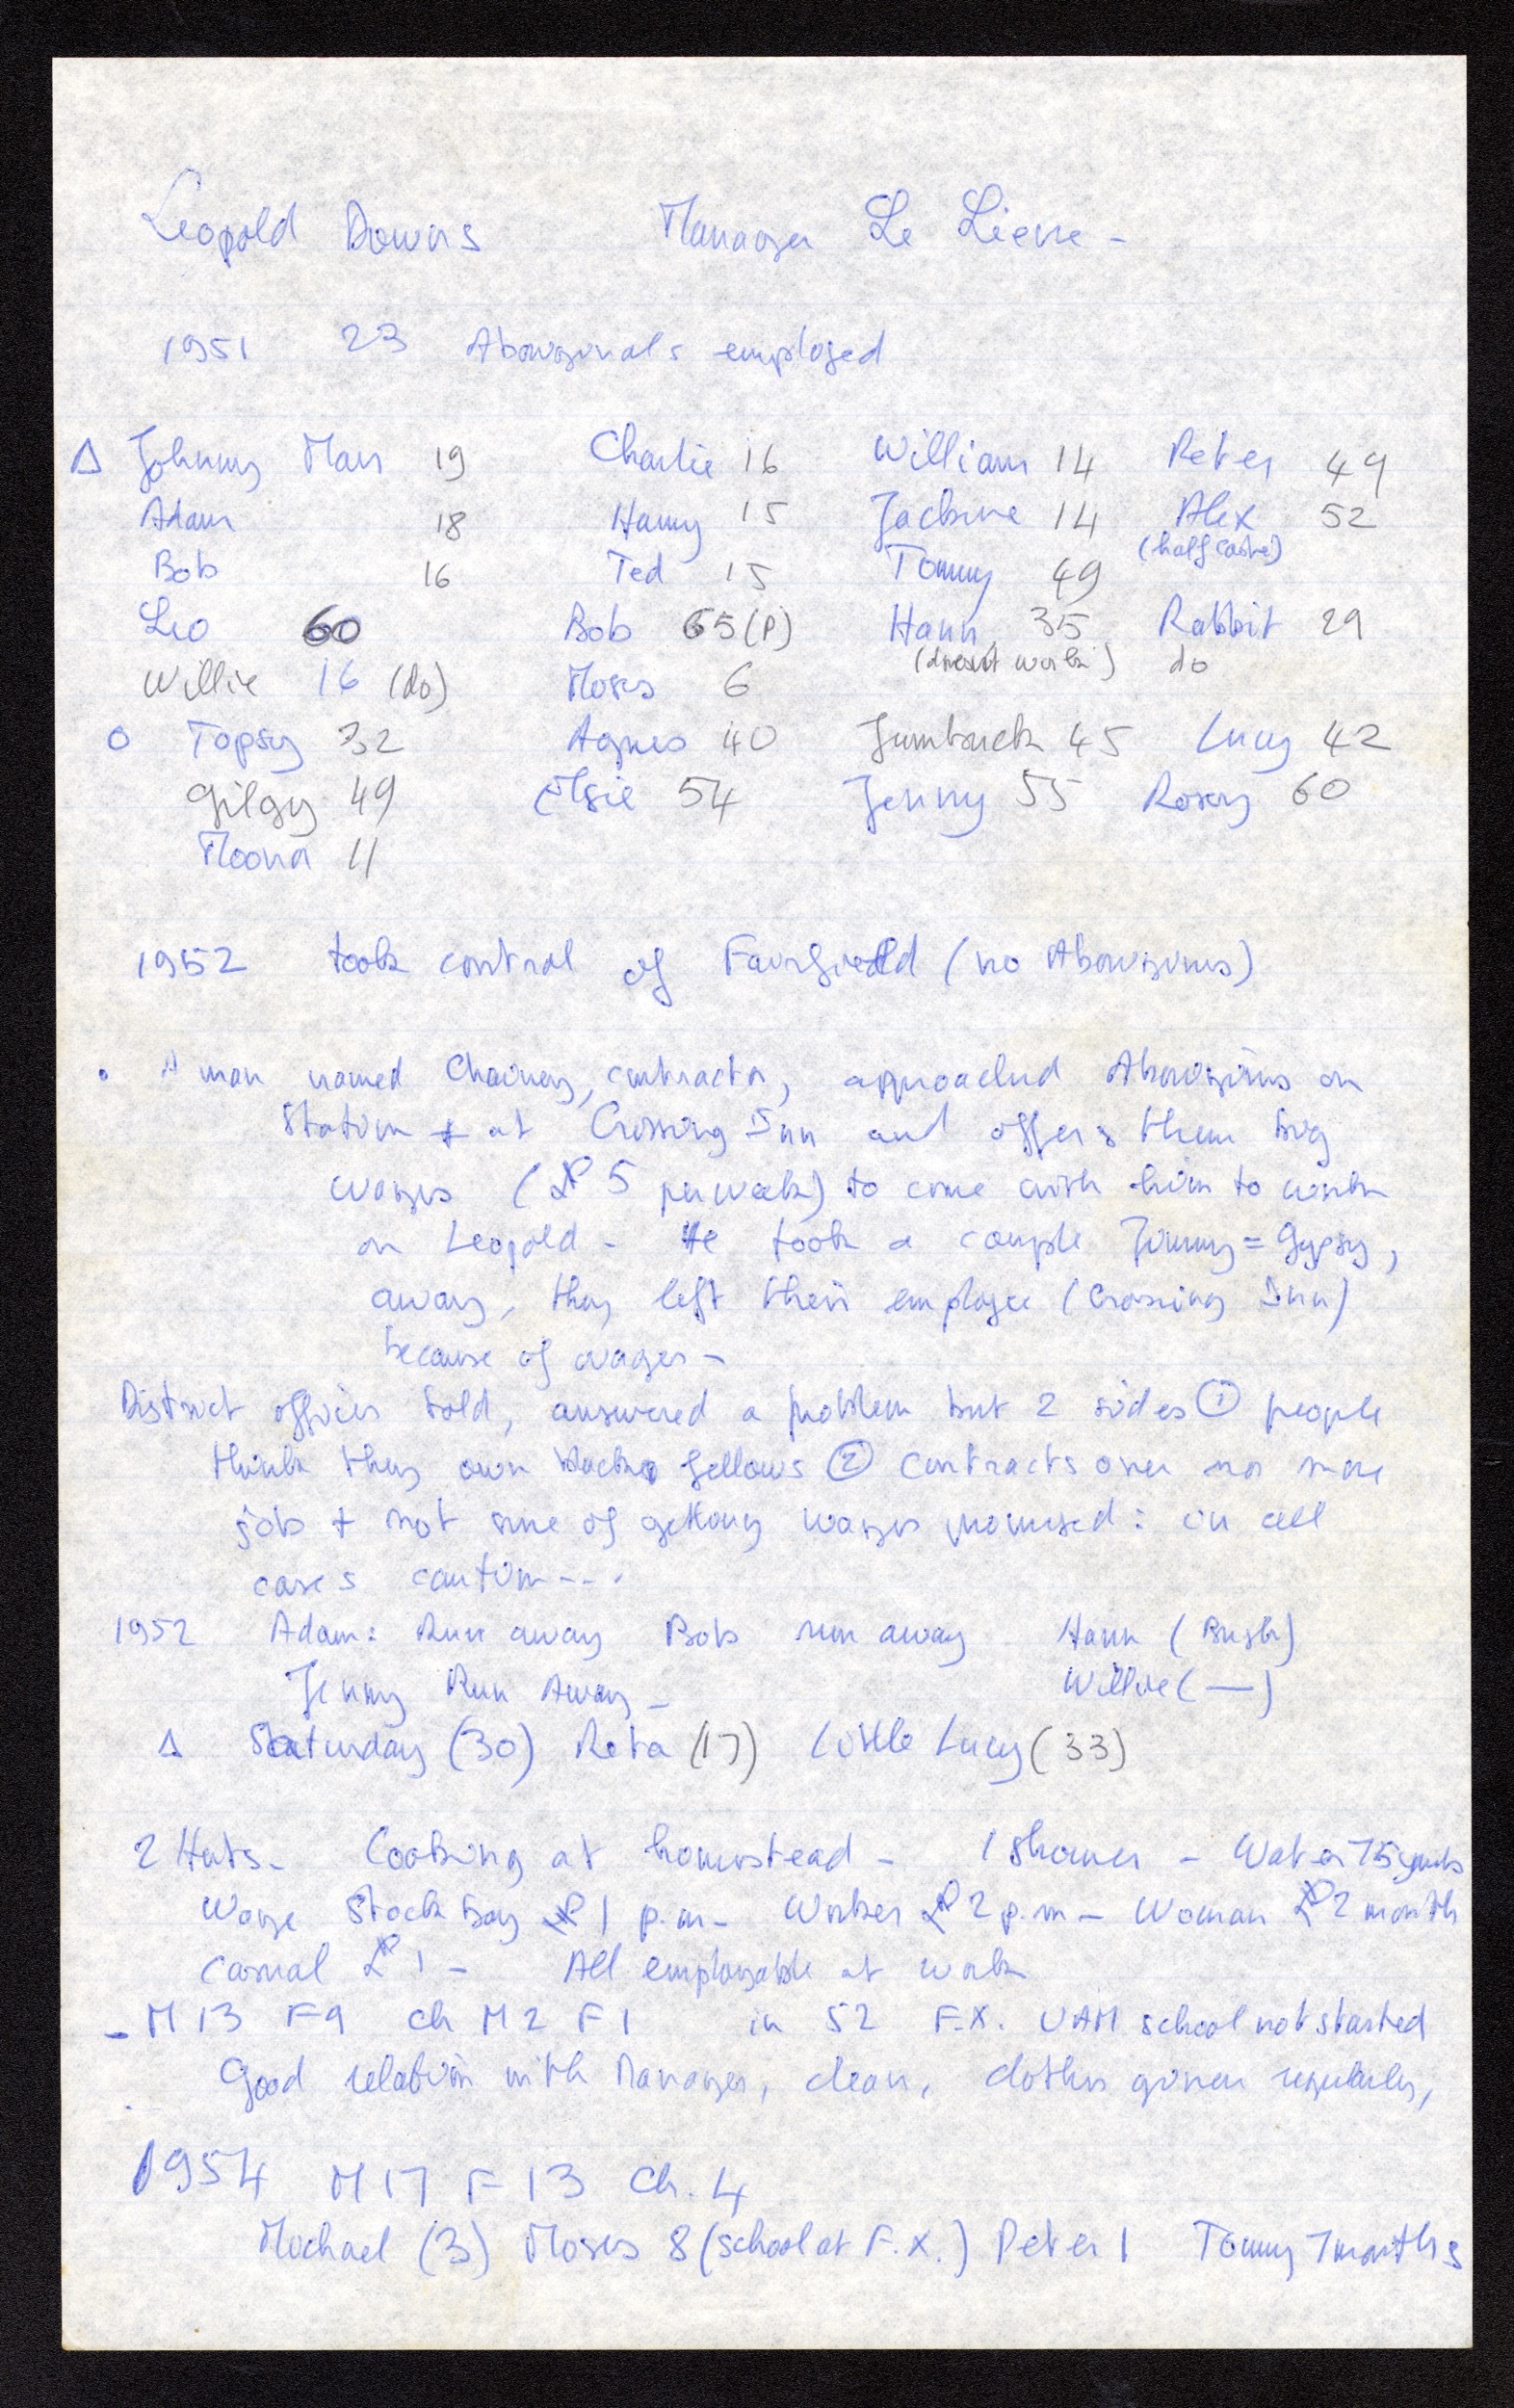 Leopold Downs Manager Le Lievre -
1951 23 Aboriginals employed
Δ Johnny Man 19 Charlie 16 William 14 Peter 49
Adam 18 Harry 15 Jackie 14 Alex 52
(half caste)
Bob 16 Ted 15 Tommy 49
Leo 60 Bob 65 (P) Hann 35 Rabbit 29
(doesn't work) do
Willie 16 (do) Moses 6
O Topsy 32 Agnes 40 Jumbuck 45 Lucy 42
Gilgy 49 Elsie 54 Jenny 55 Rosey 60
Moona 11
1952 took control of Fairfield (no Aborigines)
. A man named Chainey, contractor, approached Aborigines on
Station + at Crossing Inn and offers them big
wages (£ 5 per week) to come with him to work
on Leopold - He took a couple Jimmy = Gypsy,
away, they left their employer (Crossing Inn)
because of wages -
District officer told, answered a problem but 2 sides ① people
think they own fellows ② Contracts over no more
job + not sure of getting wages promised : in all
cases caution - - - .
1952 Adam : Run away Bob run away Hann (Bush)
Jenny Run Away - Willie ( — )
Δ Saturday (30) Reta (17) Little Lucy (33)
2 Huts - Cooking at homestead - 1 Shower - Water 75 yards
Wage Stock boy £ 1 p.m - Worker £ 2 p.m - Woman £ 2 month
Casual £ 1 - All employable at work
- M 13 F 9 Ch M 2 F 1 in 52 F.X. UAM school not started
Good relation with Manager, clean, clothes given regularly,
1954 M 17 F 13 Ch. 4
Michael (3) Moses 8 (school at F.X.) Peter 1 Tommy 7 months